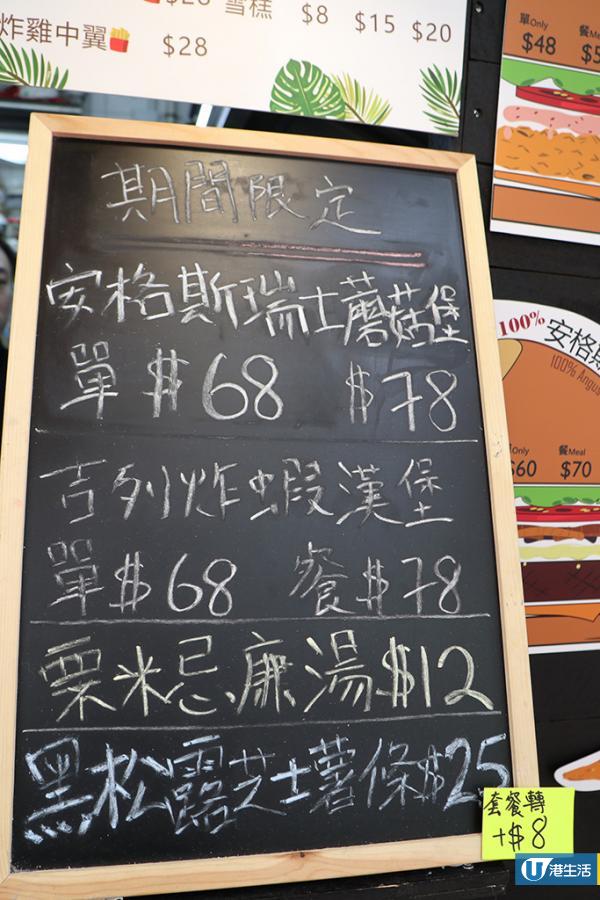 $28 雪糕 $8 $15 $20
炸雞中翼 $28
單Only 餐Me
$48 $5
期間限定
安格斯瑞士蘑菇堡
單 $68 $78
吉列炸蝦漢堡
單 $68 餐 $78
粟米忌廉湯 $12
黑松露芝士薯條 $25
套餐轉
+$8
100% 安格斯
100% Angus
Only 餐Meal
$60 $70
U 港生活